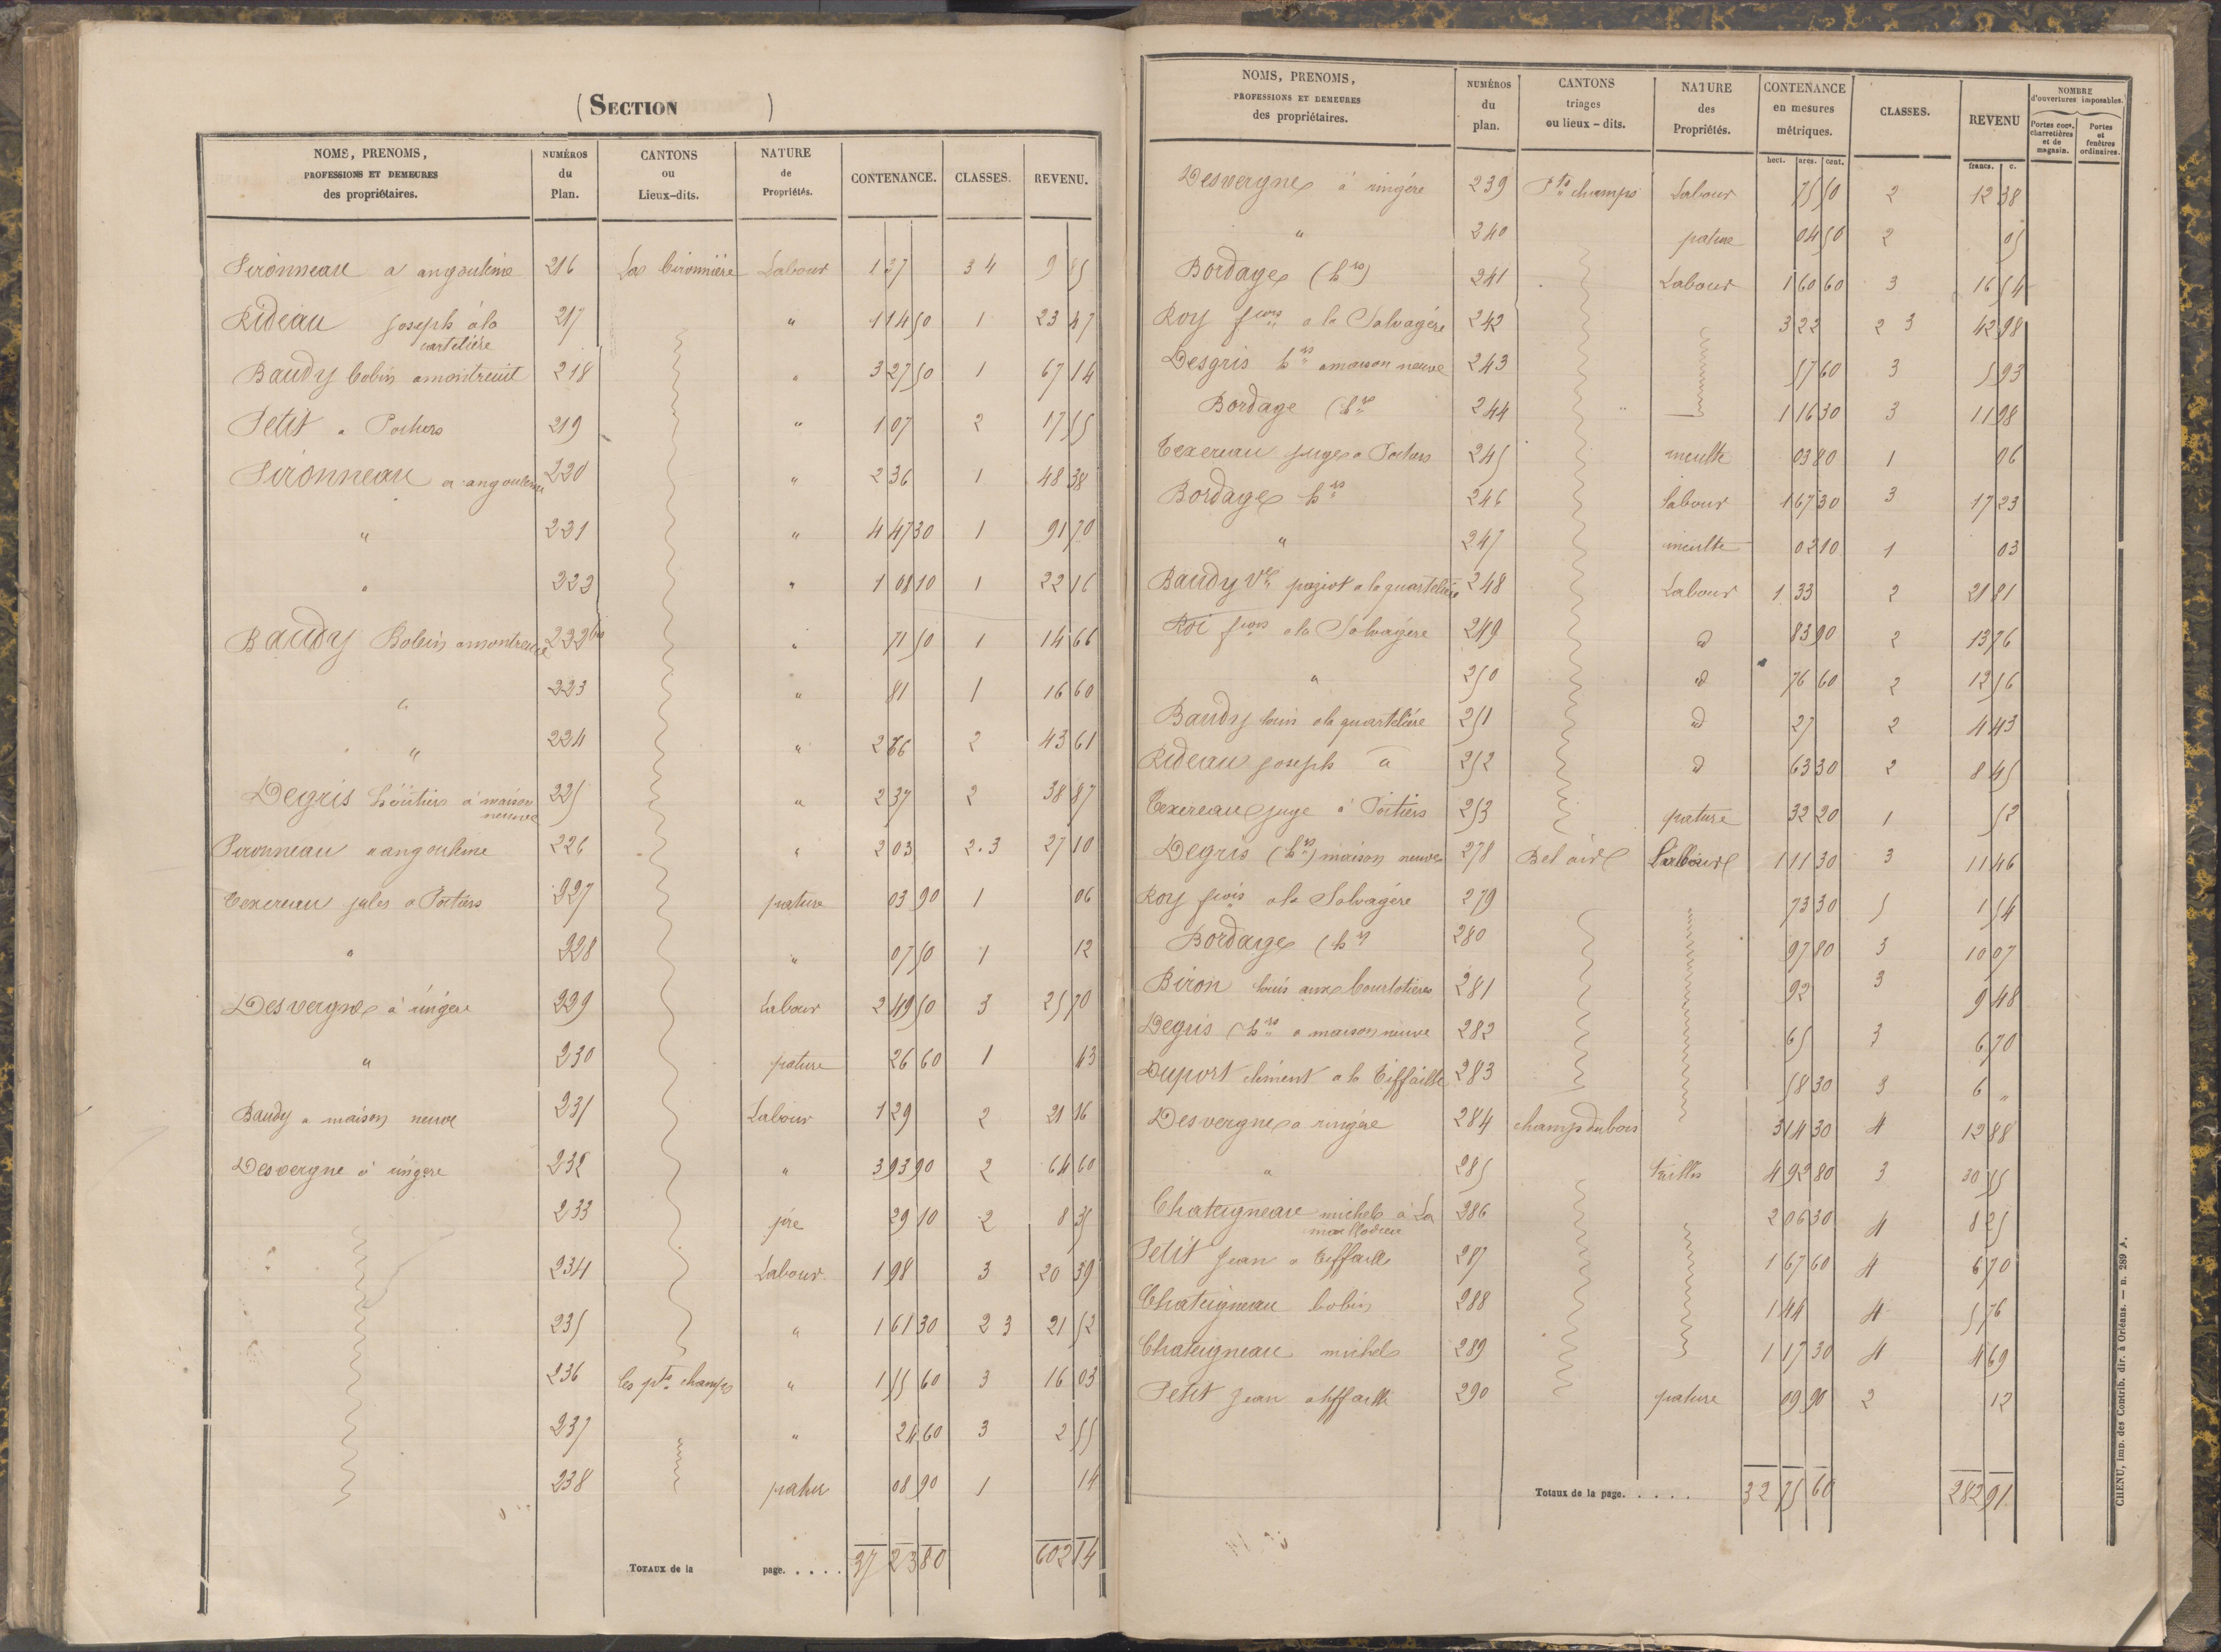 (SECTION )
NOMS, PRENOMS, PROFESSIONS ET DEMEURES des propriétaires. NUMÉROS du Plan. CANTONS ou Lieux-dits. NATURE de Propriétés. CONTENANCE. CLASSES. REVENU.
Pironneau a angouleme 216 Las Cironnière Labour 1 37 3 4 9 85
Rideau joseph à la 217 " 1 14 50 1 23 47
carteliére
Baudy Bobin a montreuil 218 " 3 27 50 1 67 14
Petit a Poitiers 219 " 1 07 2 17 55
Pironneau a angouleme 220 " 2 36 1 48 38
" 221 " 4 47 30 1 91 70
" 222 " 1 08 10 1 22 16
Baudy Bobin a montreuil 222 bis " 71 50 1 14 66
" 223 " 81 1 16 60
" 224 " 2 66 2 43 61
Degris héritiers à maison 225 " 2 37 2 38 87
neuve
Pironneau a angouleme 226 " 2 03 2.3 27 10
Texereau jules a Poitiers 227 pature 03 90 1 06
" 228 " 07 50 1 12
Desvergnes à ringère 229 Labour 2 49 50 3 25 70
" 230 pature 26 60 1 43
Baudy a maison neuve 231 Labour 1 29 2 21 16
Desvergne à ringère 232 " 3 93 90 2 64 60
233 pré 29 10 2 8 35
234 Labour 1 98 3 20 39
235 " 1 61 30 2 3 21 52
236 les pts champs " 1 55 60 3 16 03
237 " 24 60 3 2 55
238 patur 08 90 1 14
TOTAUX de la page..... 37 23 80 602 14
NOMS, PRENOMS, PROFESSIONS ET DEMEURES des propriétaires. NUMÉROS du plan. CANTONS triages ou lieux-dits. NATURE des Propriétés. CONTENANCE en mesures métriques. CLASSES. REVENU NOMBRE d'ouvertures imposables.
Portes coces, charretières et de magasin. Portes et fenêtres ordinaires.
hect. ares. cent. francs. c.
Desvergnes à ringére 239 Pts champs Labour 75 50 2 12 38
" 240 pature 04 50 2 05
Bordages (hrs) 241 Labour 1 60 60 3 16 54
Roy fcois a la Salvagére 242 3 22 2 3 42 98
Desgris hrs a maison neuve 243 57 60 3 5 93
Bordage (hrs 244 1 16 30 3 11 98
Texereau juge a Poitiers 245 inculte 03 80 1 06
Bordages hrs 246 labour 1 67 30 3 17 23
" 247 inculte 02 10 1 03
Baudy Ve paziot a la quartelière 248 Labour 1 33 2 21 81
Roi fcois a la Salvagère 249 d 83 90 2 13 76
" 250 d 76 60 2 12 56
Baudy louis a la quarteliére 251 d 27 2 4 43
Rideau joseph a 252 d 63 30 2 8 45
Texereau juge à Poitiers 253 pature 32 20 1 52
Degris (hrs) maison neuve 278 Bel air Labour 1 11 30 3 11 46
Roy fcois a la Salvagére 279 73 30 5 1 54
Bordages (hrs 280 97 80 3 10 07
Biron louis aux bourlotieres 281 92 3 9 48
Degris (hrs a maison neuve 282 65 3 6 70
Duport clément a la Tiffaille 283 58 30 3 6 "
Desvergnes a ringére 284 champs du bois 3 14 30 4 12 88
" 285 taillis 4 92 80 3 30 55
Chateigneau michel à La 286 2 06 30 4 8 25
Petit Jean a Tiffaille 287 1 67 60 4 6 70
Chateigneau bobin 288 1 44 4 5 76
Chateigneau michel 289 1 17 30 4 4 69
Petit Jean a tiffaille 290 pature 09 90 2 12
Totaux de la page..... 32 75 60 282 91
CHENU, imp. des Contrib. dir. à Orléans. — n. 289 A.